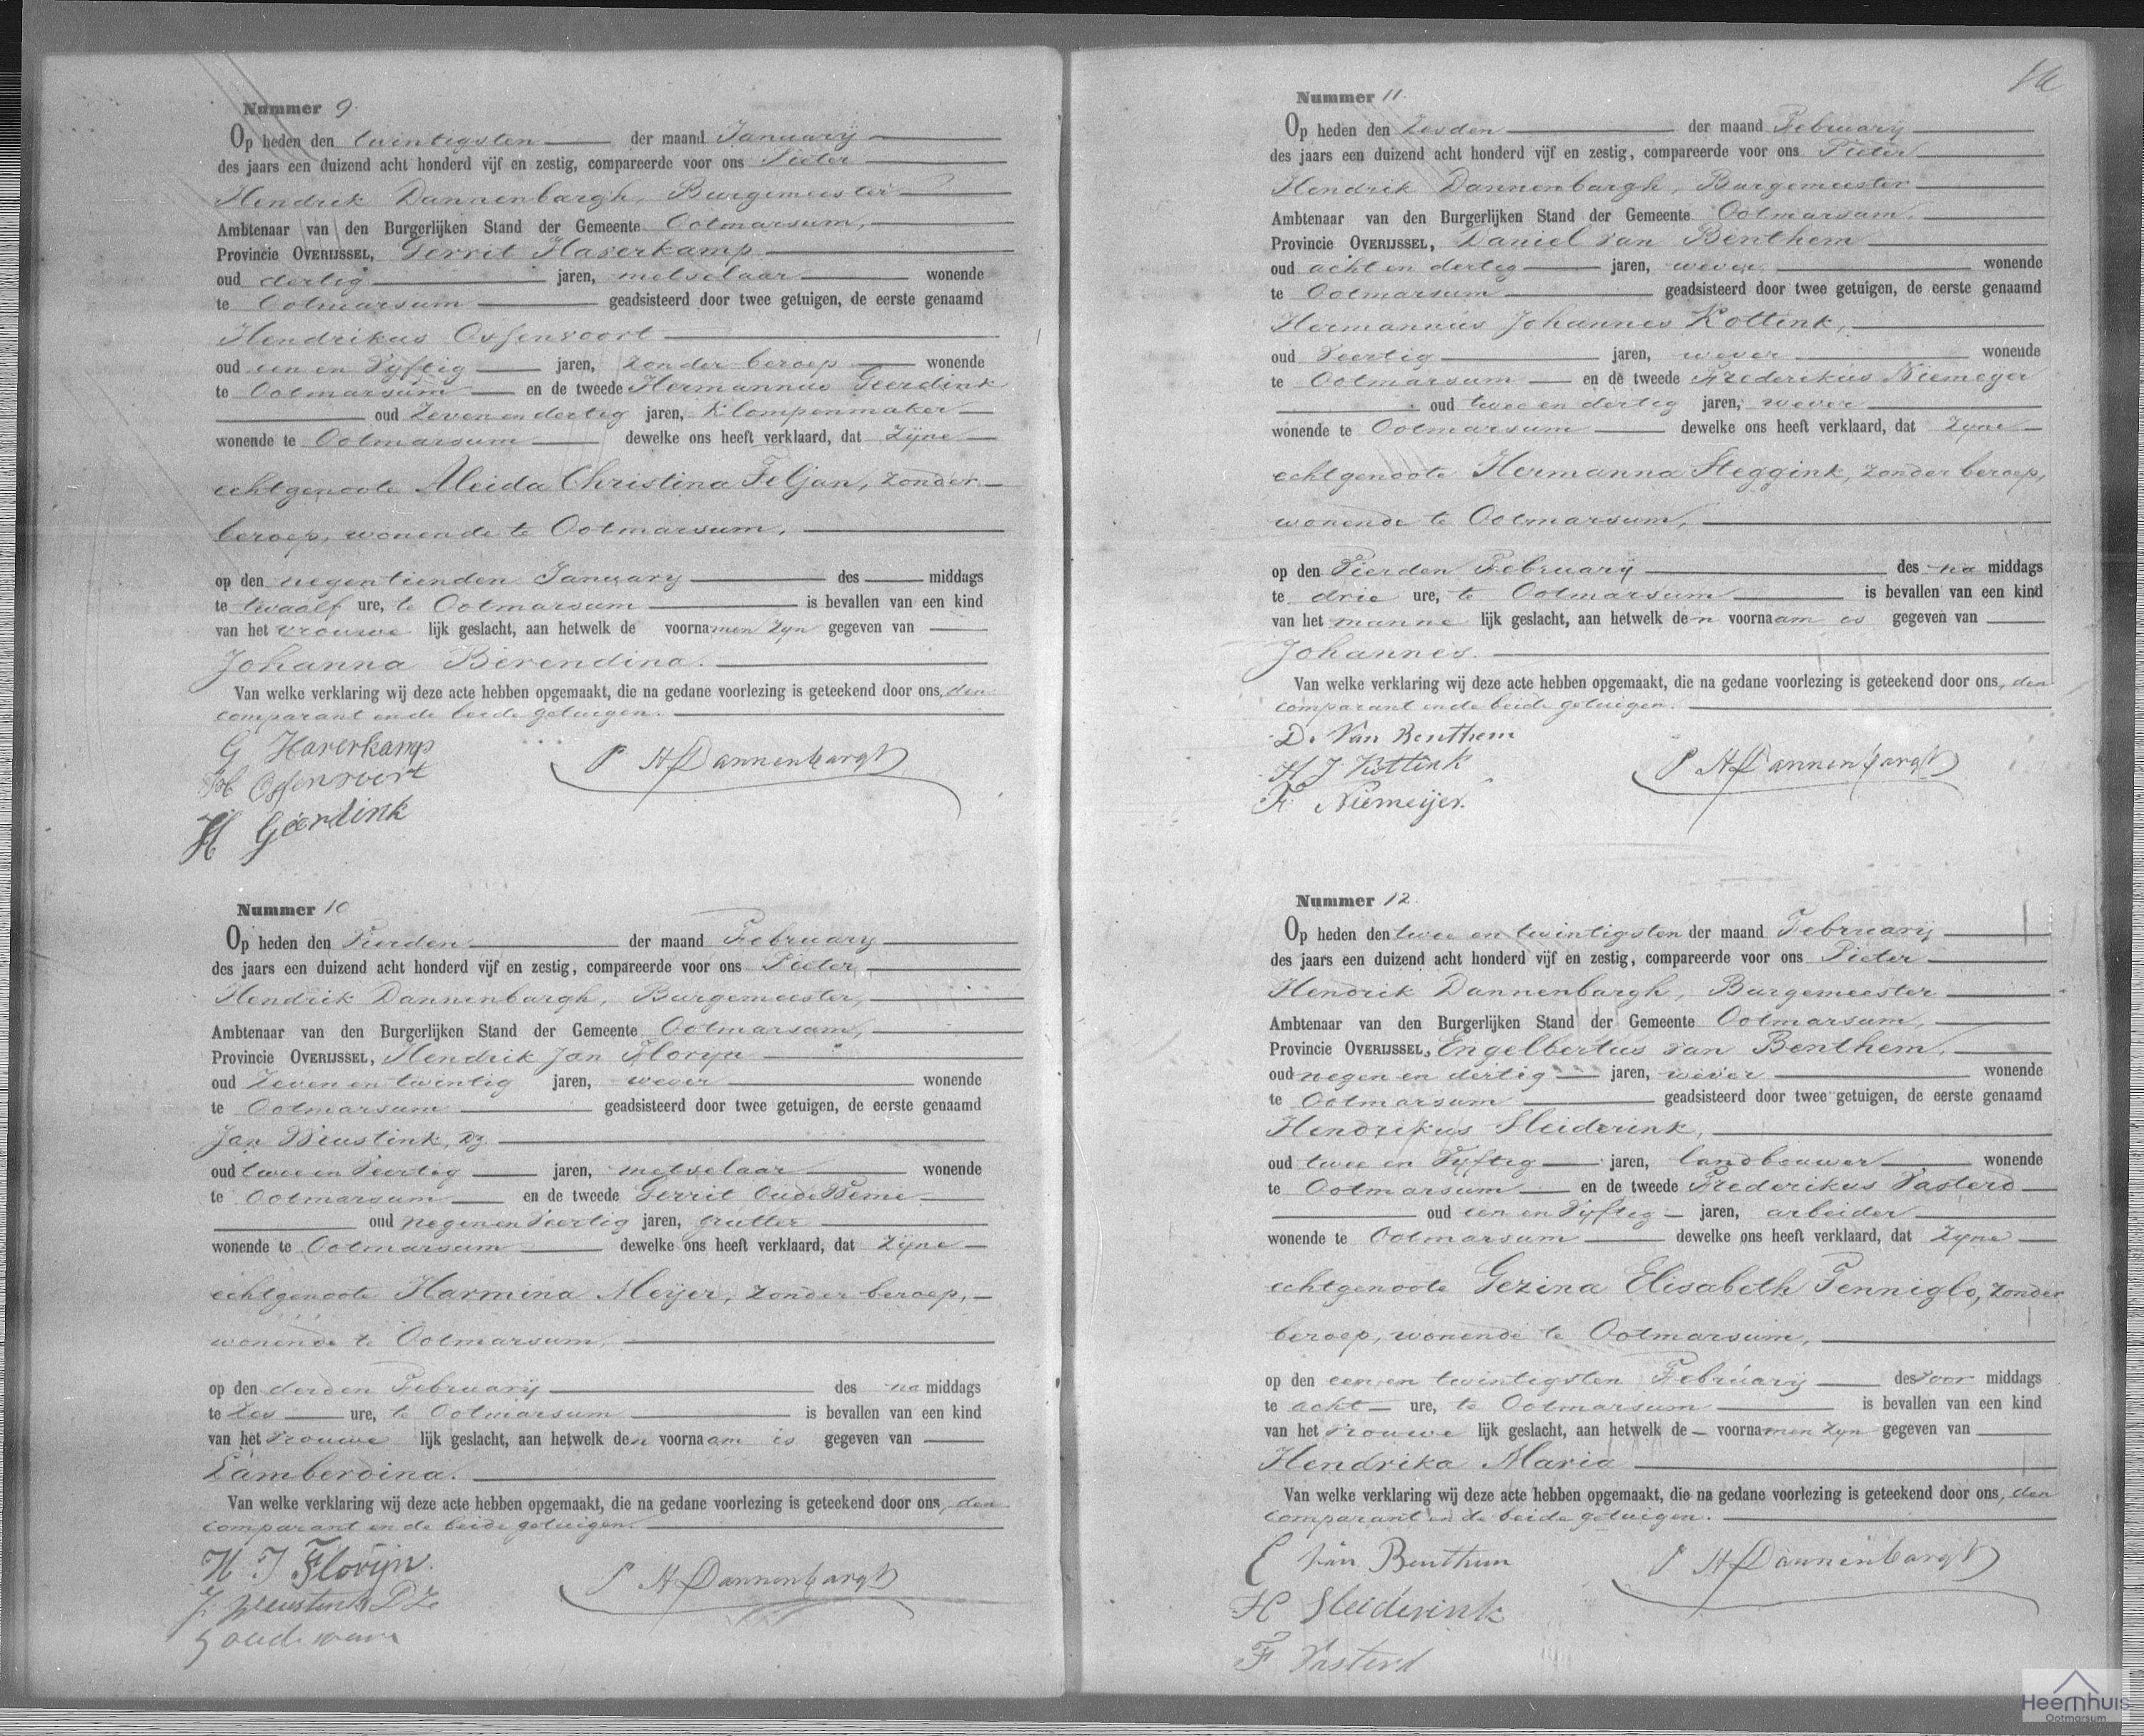 Nummer 9.
Op heden den twintigsten der maand January
des jaars een duizend acht honderd vijf en zestig, compareerde voor ons Pieter
Hendrik Dannenbargh, Burgemeester
Ambtenaar van den Burgerlijken Stand der Gemeente Ootmarsum,
Provincie OVERIJSSEL, Gerrit Haverkamp
oud dertig jaren, metselaar wonende
te Ootmarsum geadsisteerd door twee getuigen, de eerste genaamd
Hendrikus Ossenvoort
oud een en Vyftig jaren, zonder beroep wonende
te Ootmarsum en de tweede Hermannus Geerdink
oud Zeven en dertig jaren, Klompenmaker
wonende te Ootmarsum dewelke ons heeft verklaard, dat Zyne
echtgenoote Aleida Christina Feljan, zonder
beroep, wonende te Ootmarsum,
op den negentienden January des middags
te twaalf ure, te Ootmarsum is bevallen van een kind
van het vrouwe lijk geslacht, aan hetwelk de voornamen zyn gegeven van
Johanna Berendina.
Van welke verklaring wij deze acte hebben opgemaakt, die na gedane voorlezing is geteekend door ons, den
comparant en de beide getuigen.
G Haverkamp
P H Dannenbargh
H Ossenvoort
H Geerdink
Nummer 10
Op heden den Vierden der maand February
des jaars een duizend acht honderd vijf en zestig, compareerde voor ons Pieter
Hendrik Dannenbargh, Burgemeester,
Ambtenaar van den Burgerlijken Stand der Gemeente Ootmarsum,
Provincie OVERIJSSEL, Hendrik Jan Floryn
oud Zeven en twintig jaren, wever wonende
te Ootmarsum geadsisteerd door twee getuigen, de eerste genaamd
Jan Weustink, Dz.
oud twee en Veertig jaren, metselaar wonende
te Ootmarsum en de tweede Gerrit Oude Weme
oud negen en Veertig jaren, grutter
wonende te Ootmarsum dewelke ons heeft verklaard, dat Zyne
echtgenoote Harmina Meyer, zonder beroep,
wonende te Ootmarsum,
op den derden February des na middags
te Zes ure, te Ootmarsum is bevallen van een kind
van het Vrouwe lijk geslacht, aan hetwelk den voornaam is gegeven van
Lamberdina.
Van welke verklaring wij deze acte hebben opgemaakt, die na gedane voorlezing is geteekend door ons, den
comparant en de beide getuigen.
H J Florijn.
P H Dannenbargh
J Weustink DZ
G oude weme
Nummer 11.
Op heden den Zesden der maand February
des jaars een duizend acht honderd vijf en zestig, compareerde voor ons Pieter
Hendrik Dannenbargh, Burgemeester
Ambtenaar van den Burgerlijken Stand der Gemeente Ootmarsum,
Provincie OVERIJSSEL, Daniel van Benthem
oud acht en dertig jaren, wever wonende
te Ootmarsum geadsisteerd door twee getuigen, de eerste genaamd
Hermannus Johannes Kottink,
oud Veertig jaren, wever wonende
te Ootmarsum en de tweede Frederikus Niemeyer
oud twee en dertig jaren, wever
wonende te Ootmarsum dewelke ons heeft verklaard, dat Zyne
echtgenoote Hermanna Steggink, zonder beroep,
wonende te Ootmarsum,
op den Vierden February des na middags
te drie ure, te Ootmarsum is bevallen van een kind
van het manne lijk geslacht, aan hetwelk den voornaam is gegeven van
Johannes.
Van welke verklaring wij deze acte hebben opgemaakt, die na gedane voorlezing is geteekend door ons, den
comparant en de beide getuigen.
D. Van Benthem
P H Dannenbargh
H J Kottink
F Niemeijer.
Nummer 12.
Op heden den twee en twintigsten der maand February
des jaars een duizend acht honderd vijf en zestig, compareerde voor ons Pieter
Hendrik Dannenbargh, Burgemeester
Ambtenaar van den Burgerlijken Stand der Gemeente Ootmarsum,
Provincie OVERIJSSEL, Engelbertus van Benthem,
oud negen en dertig jaren, wever wonende
te Ootmarsum geadsisteerd door twee getuigen, de eerste genaamd
Hendrikus Sleiderink,
oud twee en Vyftig jaren, landbouwer wonende
te Ootmarsum en de tweede Frederikus Vasterd
oud een en Vyftig jaren, arbeider
wonende te Ootmarsum dewelke ons heeft verklaard, dat Zyne
echtgenoote Gezina Elisabeth Fenniglo, zonder
beroep, wonende te Ootmarsum,
op den een en twintigsten February des Voor middags
te acht ure, te Ootmarsum is bevallen van een kind
van het Vrouwe lijk geslacht, aan hetwelk de voornamen zyn gegeven van
Hendrika Maria
Van welke verklaring wij deze acte hebben opgemaakt, die na gedane voorlezing is geteekend door ons, den
comparant en de beide getuigen.
E van Benthem
P H Dannenbargh
H Sleiderink
F Vasterd
Heemhuis
Ootmarsum